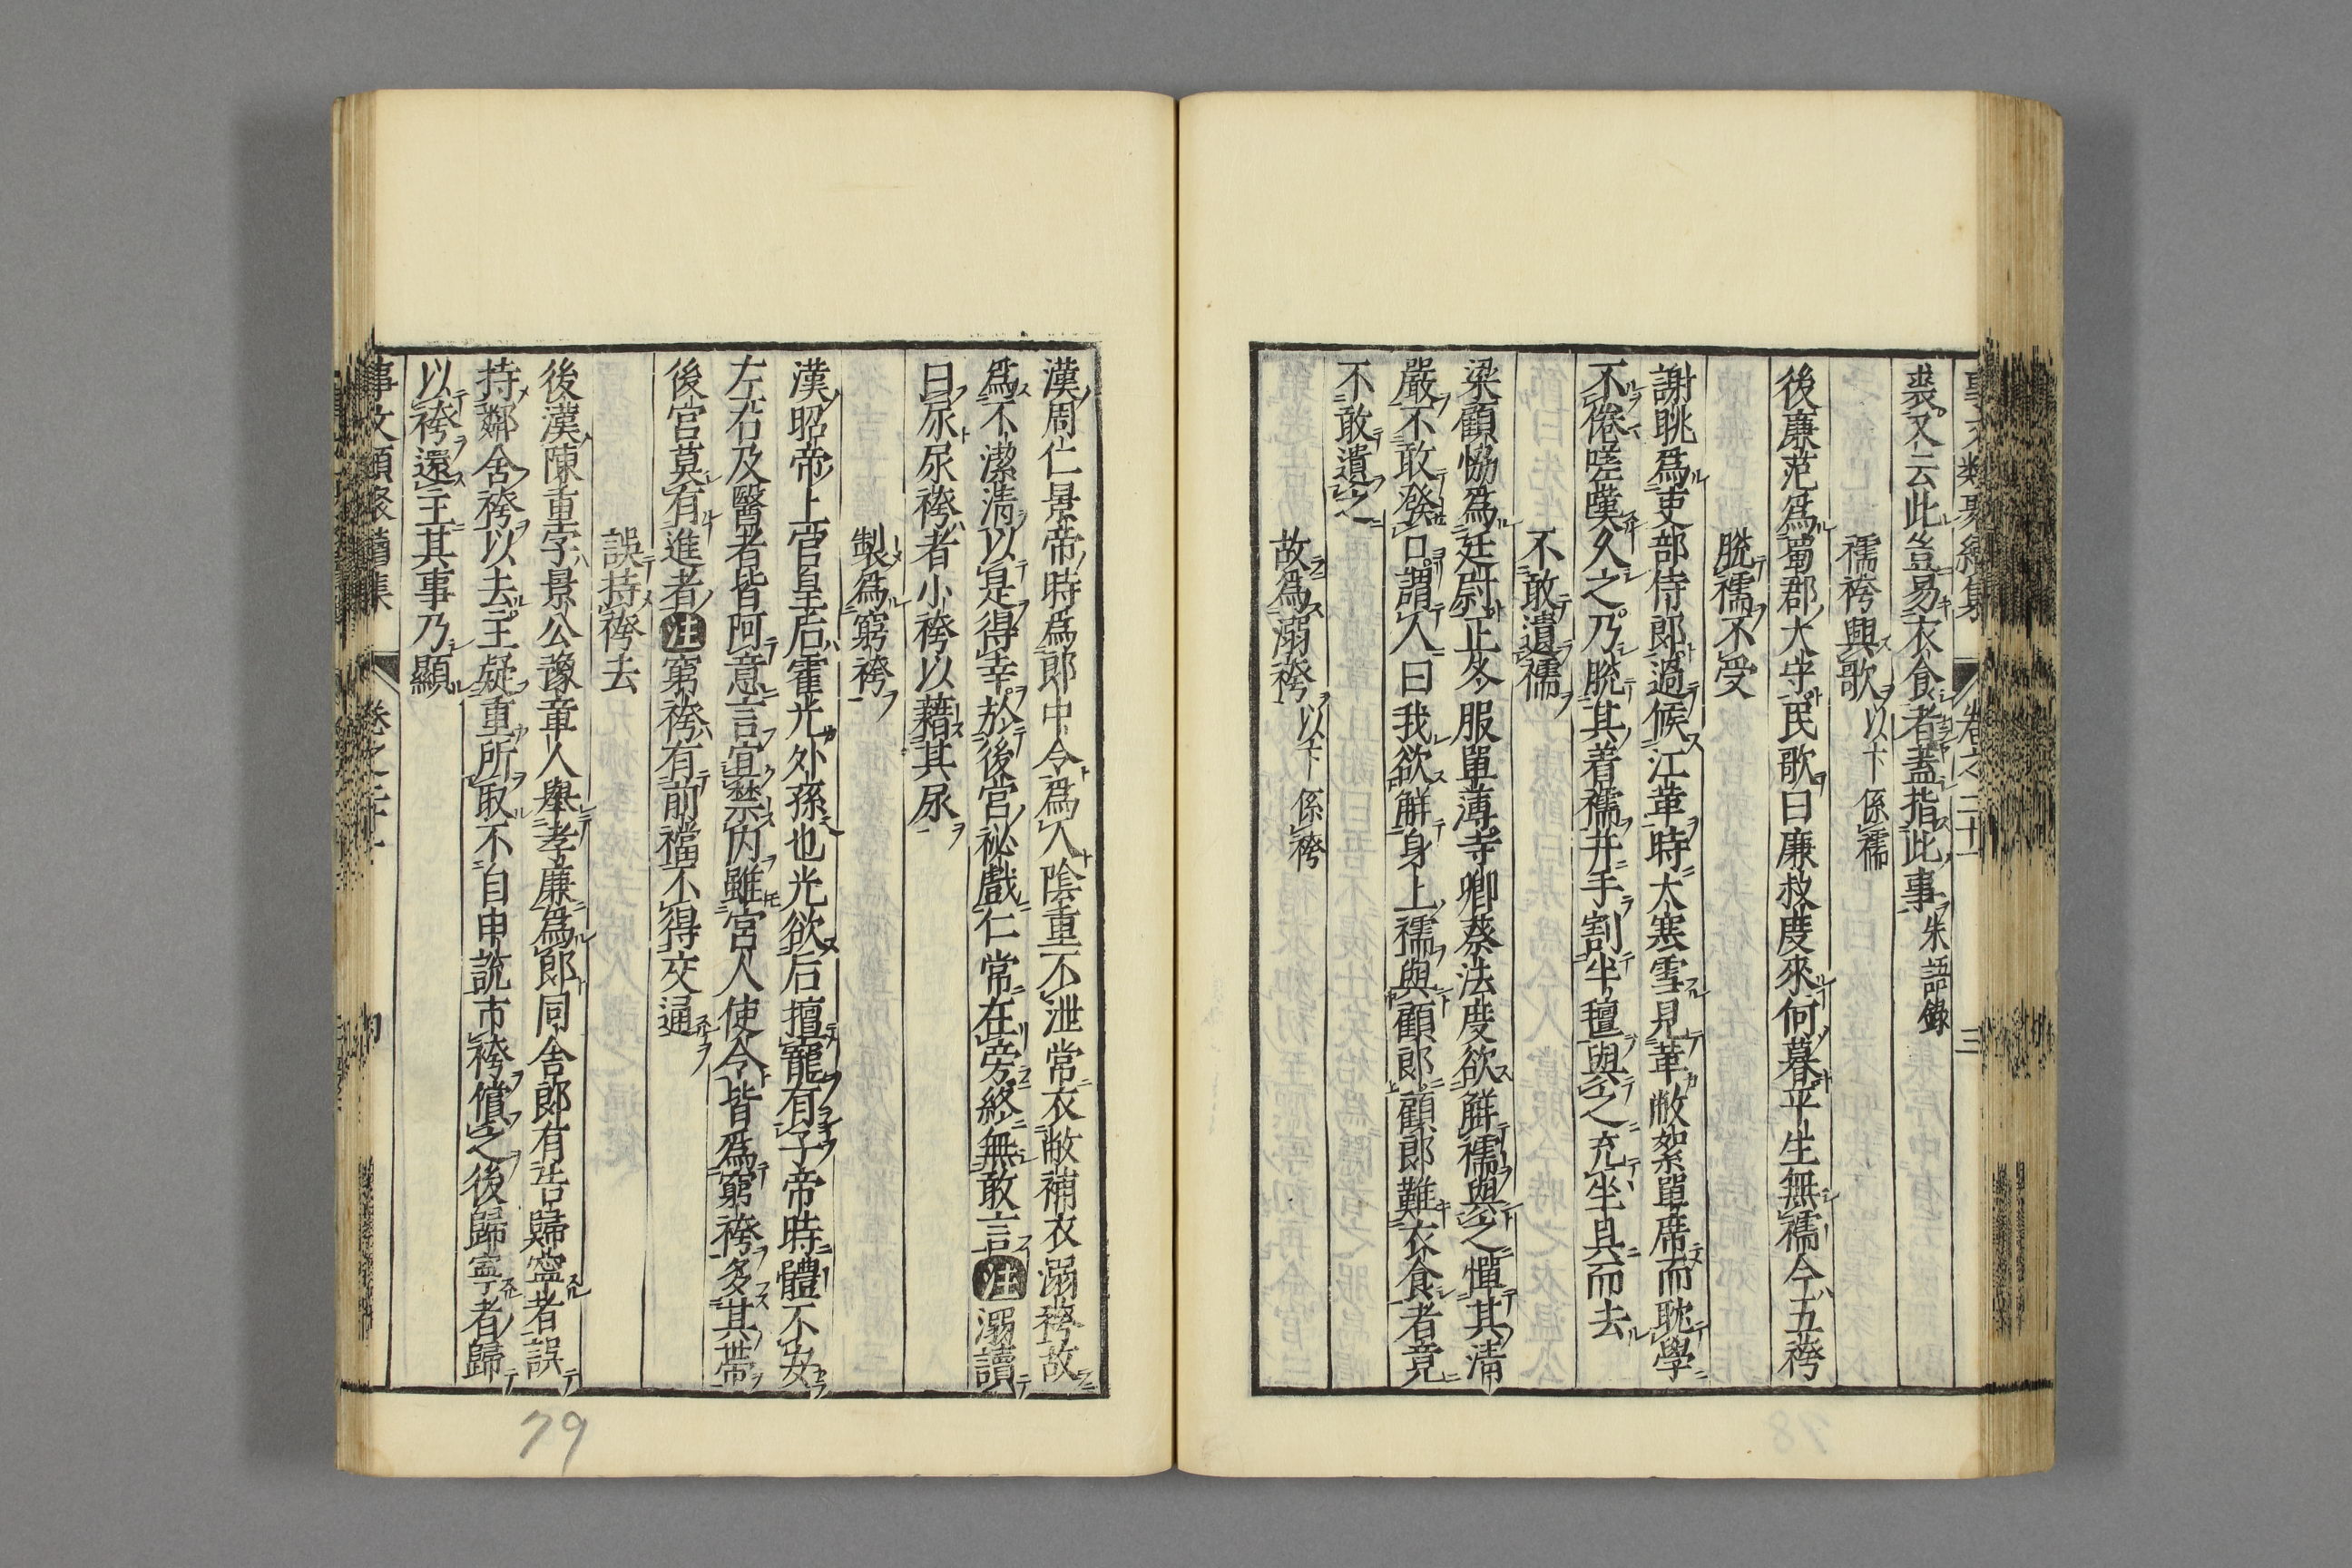 事文類聚續集 卷之二十一 三
裘又云此豈易衣食者蓋指此事朱語錄
襦袴興歌以下係襦
後廉范爲蜀郡大守民歌曰廉叔度來何暮平生無襦今五袴
脫襦不受
謝眺爲吏部侍郎過候江革時大寒雪見革敝絮單席而耽學
不倦嗟嘆久之乃脫其着襦幷手割半氊與之充坐具而去
不敢遺襦
梁顧協爲廷尉正冬服單薄寺卿蔡法度欲解襦與之憚其清
嚴不敢發口謂人曰我欲解身上襦與顧郎顧郎難衣食者竟
不敢遺之
故爲溺袴以下係袴
漢周仁景帝時爲郎中令爲人陰重不泄常衣敝補衣溺袴故
爲不潔清以是得幸於後宮祕戲仁常在旁終無敢言注溺讀
曰尿尿袴者小袴以藉其尿
製爲窮袴
漢昭帝上官皇后霍光外孫也光欲后擅寵有子帝時體不安
左右及醫者皆阿意言宜禁內雖宮人使令皆爲窮袴多其帶
後宮莫有進者注窮袴有前襠不得交通
誤持袴去
後漢陳重字景公豫章人舉孝廉爲郎同舍郎有告歸寧者誤
持鄰舍袴以去主疑重所取不自申說市袴償之後歸寧者歸
以袴還主其事乃顯
事文類聚續集 卷之二十一
79